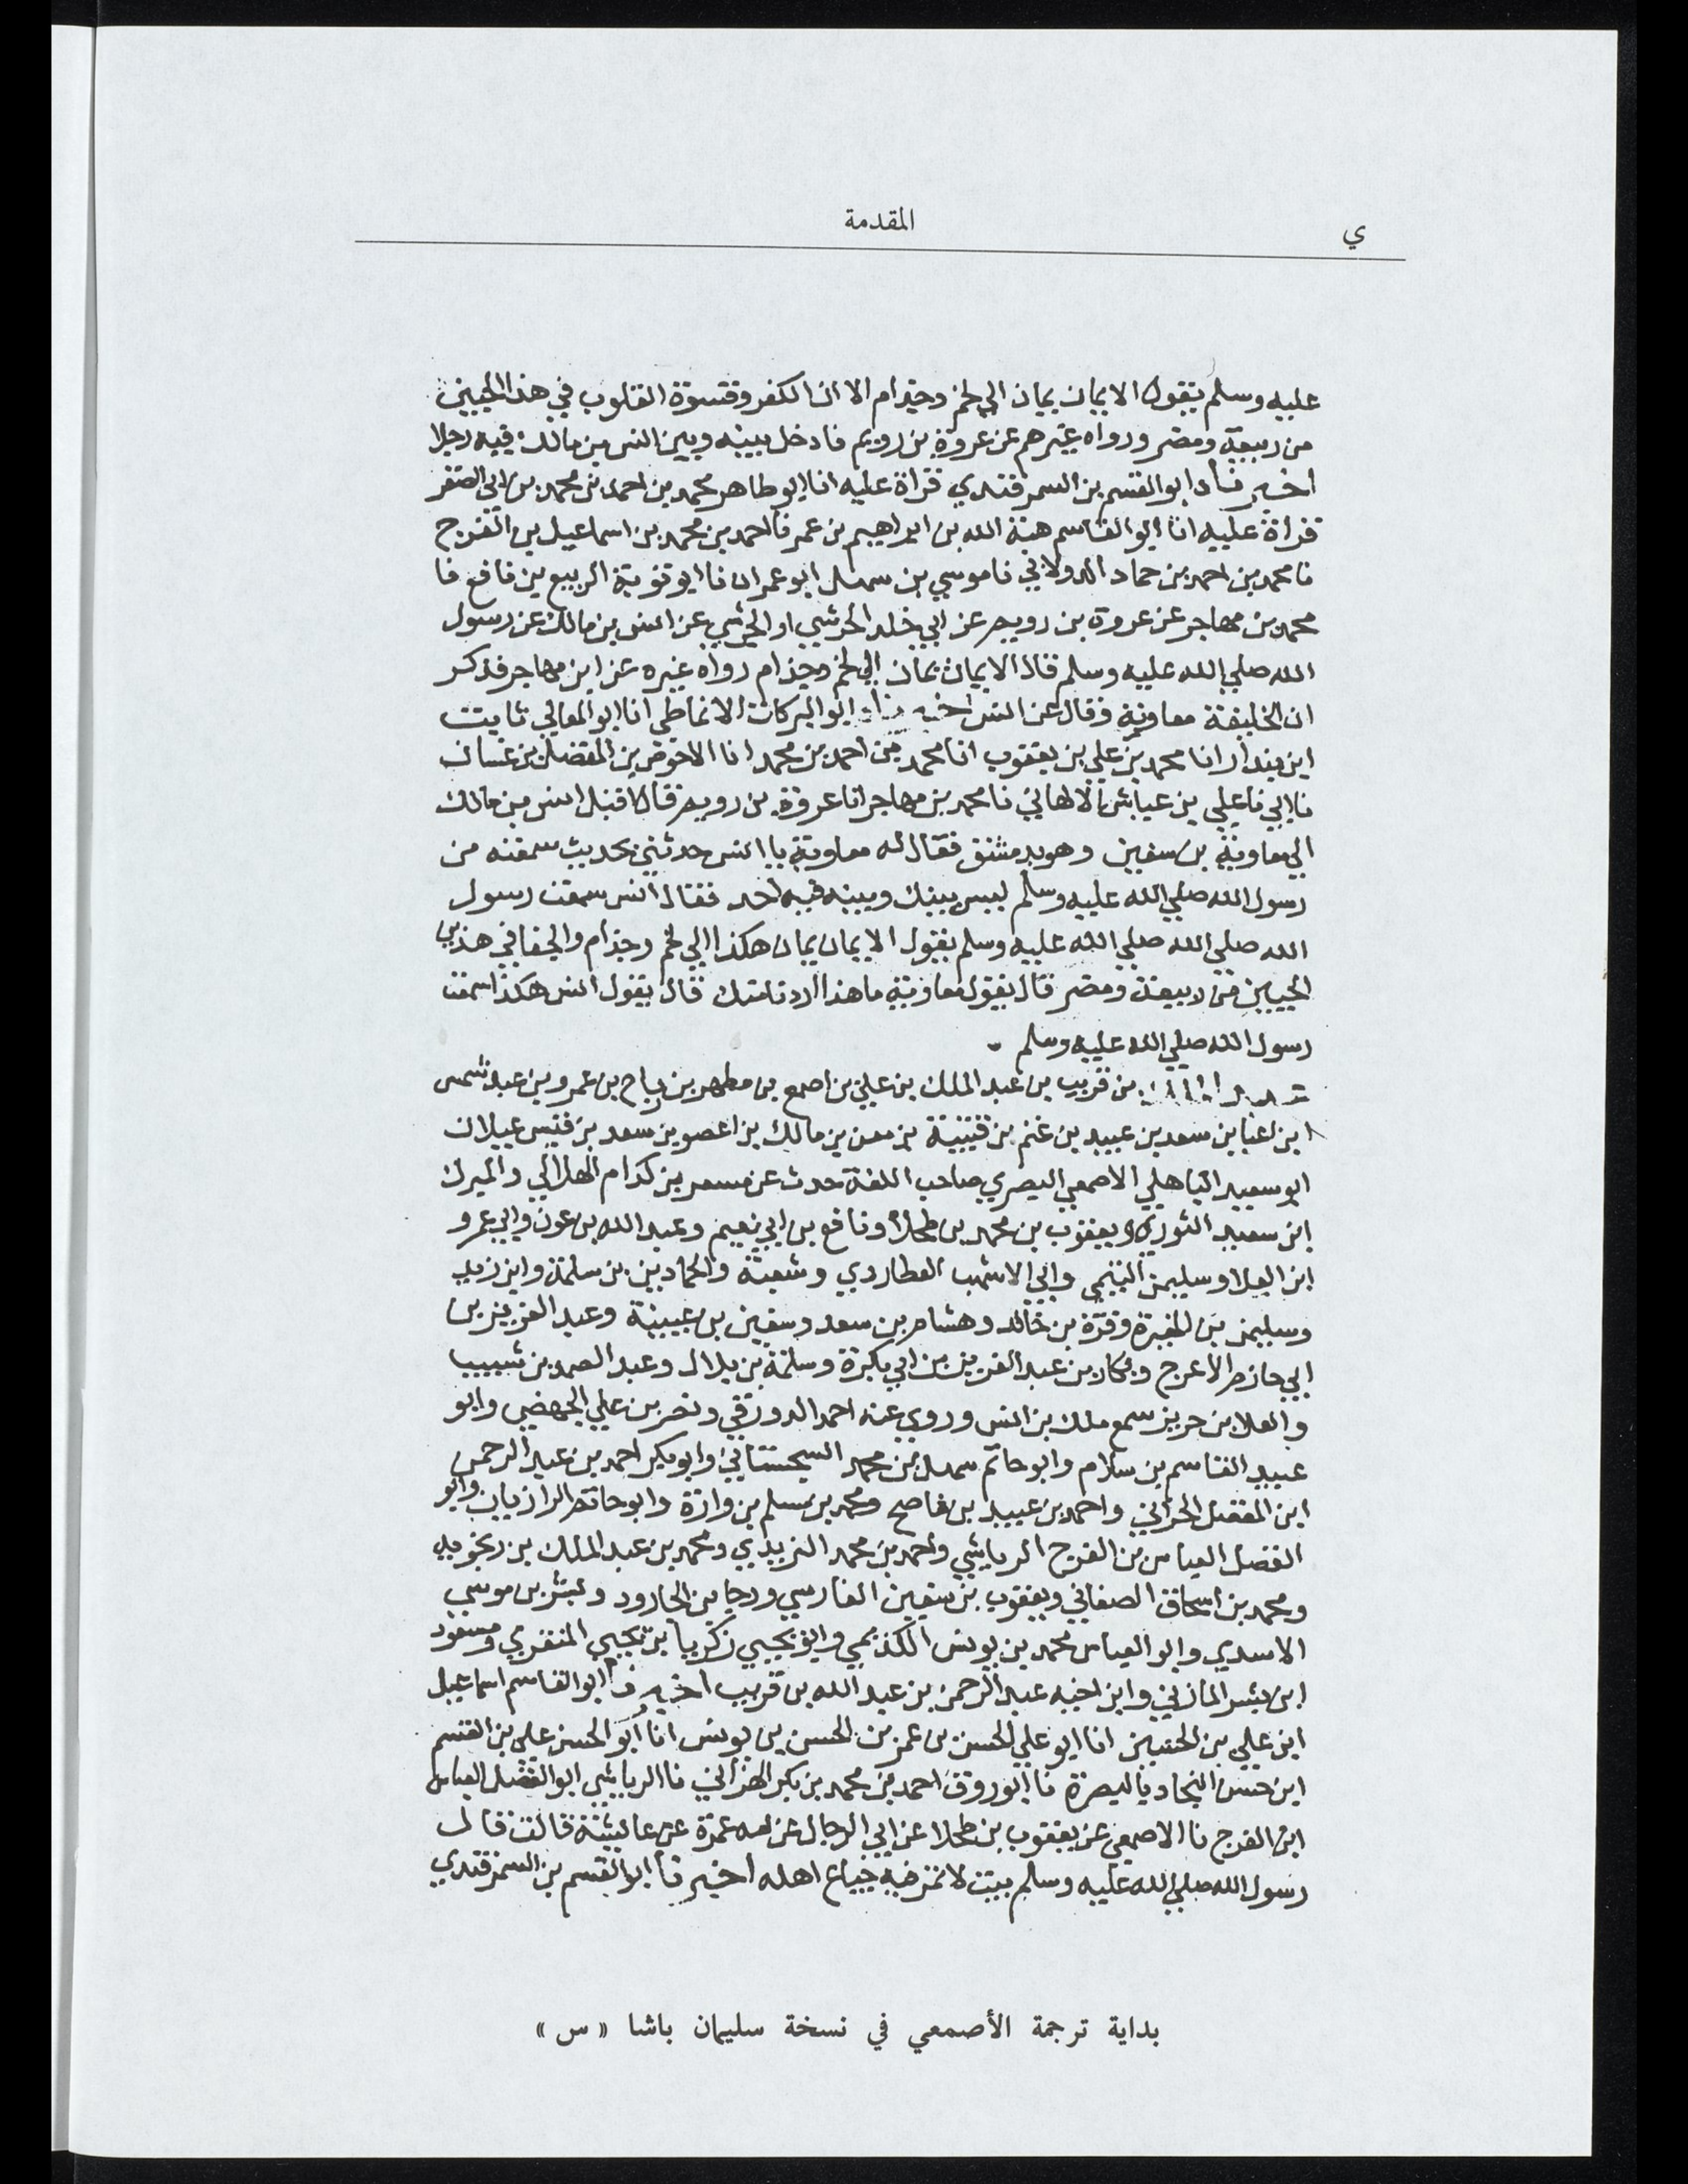 ي
المقدمة
عليه وسلم يقول الايمان يمان الي لخم وجذام الا ان الكفر وقسوة القلوب في هذا الحيين
من ربيعة ومضر ورواه غيرهم عن عروة بن رويم فادخل بينه وبين انس بن مالك فيه رجلا
ابو القسم بن السمرقندي قراة عليه انا ابو طاهر محمد بن احمد بن محمد بن ابي الصقر
قراة عليه انا ابو القاسم هبة الله بن ابراهيم بن عمر نا احمد بن محمد بن اسماعيل بن الفرج
نا محمد بن احمد بن حماد الدولابي نا موسي بن سهل ابو عمران نا ابو توبة الربيع بن نافع نا
محمد بن مهاجر عن عروة بن رويم عن ابي خلد الحرشي او الجرشي عن انس بن مالك عن رسول
الله صلي الله عليه وسلم قال الايمان يمان الي لخم وجذام رواه غيره عن ابن مهاجر فذكر
ان الخليفة معاوية وقال عن انس ابو البركات الانماطي انا ابو المعالي ثابت
ابن بندار انا محمد بن علي بن يعقوب انا محمد بن احمد بن محمد انا الاحوص بن المفضل بن غسان
نا ابي نا علي بن عياش الالهاني نا محمد بن مهاجر انا عروة بن رويم قال اقبل انس بن مالك
الي معاوية بن سفين وهو بدمشق فقال له معاوية يا انس حدثني بحديث سمعته من
رسول الله صلي الله عليه وسلم ليس بينك وبينه فيه احد فقال انس سمعت رسول
الله صلي الله صلي الله عليه وسلم يقول الايمان يمان هكذا الي لخم وجذام والجفا في هذين
الحيين من ربيعة ومضر قال يقول معاوية ما هذا قال يقول انس هكذا سمعت
رسول الله صلي الله عليه وسلم
بن قريب بن عبد الملك بن علي بن اصمع بن مظهر بن رباح بن عمرو بن عبد شمس
ابن اعيا بن سعد بن عبيد بن غنم بن قتيبة بن معن بن مالك بن اعصر بن سعد بن قيس عيلان
ابو سعيد الباهلي الاصمعي البصري صاحب اللغة حدث عن مسعر بن كدام الهلالي والمبرك
ابن سعيد الثوري ويعقوب بن محمد بن طحلا ونافع بن ابي نعيم وعبد الله بن عون وابي عمرو
ابن العلا وسليمن التيمي وابي الاشهب العطاردي وشعبة والحمادين بن سلمة وابن زيد
وسليمن بن المغيرة وقرة بن خالد وهشام بن سعد وسفين بن عيينة وعبد العزيز بن
ابي حازم الاعرج وبكار بن عبد العزيز بن ابي بكرة وسلمة بن بلال وعبد الصمد بن شبيب
والعلا بن حريز سمع ملك بن انس وروي عنه احمد الدورقي ونصر بن علي الجهضمي وابو
عبيد القاسم بن سلام وابو حاتم سهل بن محمد السجستاني وابو بكير احمد بن عبد الرحمن
ابن المفضل الحراني واحمد بن عبيد بن ناصح ومحمد بن مسلم بن وارة وابو حاتم الرازيان وابو
الفضل العباس بن الفرج الرياشي واحمد بن محمد اليزيدي ومحمد بن عبد الملك بن زنجويه
ومحمد بن اسحاق الصغاني ويعقوب بن سفين الفارسي ورجا بن الجارود وبشر بن موسي
الاسدي وابو العباس محمد بن يونس الكديمي وابو يحيي زكريا بن يحيي المنقري ومسعود
ابن بشر المازني وابن اخيه عبد الرحمن بن عبد الله بن قريب ابو القاسم اسماعيل
ابن علي بن الحسين انا ابو علي الحسن بن عمر بن الحسن بن يونس انا ابو الحسن علي بن القسم
ابن حسن النجاد بالبصرة نا ابو روق احمد بن محمد بن بكر الهزاني نا الرياشي ابو الفضل العباس
ابن الفرج نا الاصمعي عن يعقوب بن طحلا عن ابي الرجال عن امه عمرة عن عايشة قالت قال
رسول الله صلي الله عليه وسلم بيت لا تمر فيه جياع اهله ابو القسم بن السمرقندي
بداية ترجمة الأصمعي في نسخة سليمان باشا « س »